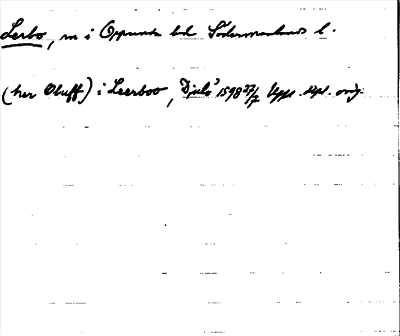 Lerbo, sn i Oppunda hd Södermanlands l.
(her Oluff) i Leerboo, Djulö 1598 27/7 orig.